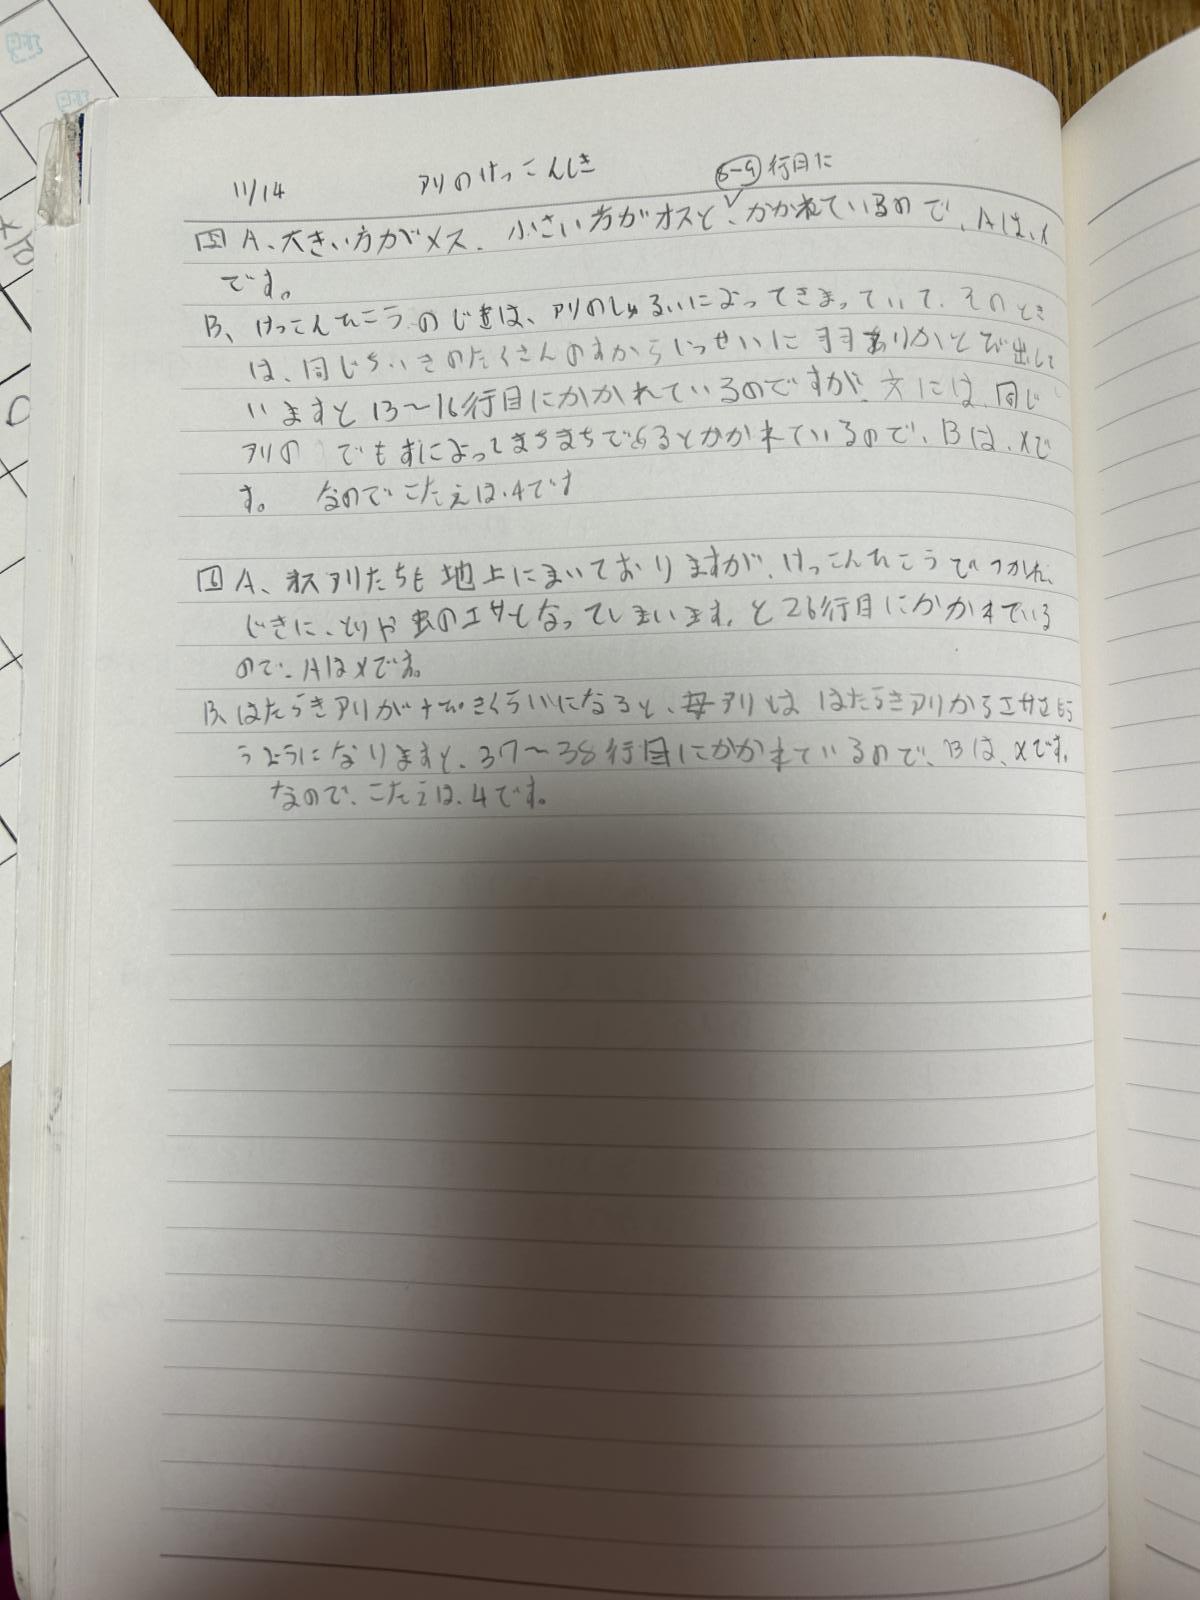 11/14 アリのけっこんしき 8-9行目に
5 A、大きい方がメス、小さい方がオスと、かかれているので、Aは、x
です。
B、けっこんひこうのじきは、アリのしゅるいによってきまっていて、そのとき
は、同じちいきのたくさんのすからいっせいに羽ありがとび出して
いますと13〜16行目にかかれているのですが、文には、同じ
アリの でもすによってまちまちであるとかかれているので、Bは、xで
す。 なのでこたえは、4です
6 A、オスアリたちも地上にまいておりますが、けっこんひこうでつかれ、
じきに、とりや虫のエサとなってしまいます。と26行目にかかれている
ので、Aはxです。
B、はたらきアリが十ぴきくらいになると、母アリは はたらきアリからエサをもら
うようになりますと、37〜38行目にかかれているので、Bは、xです。
なので、こたえは、4です。